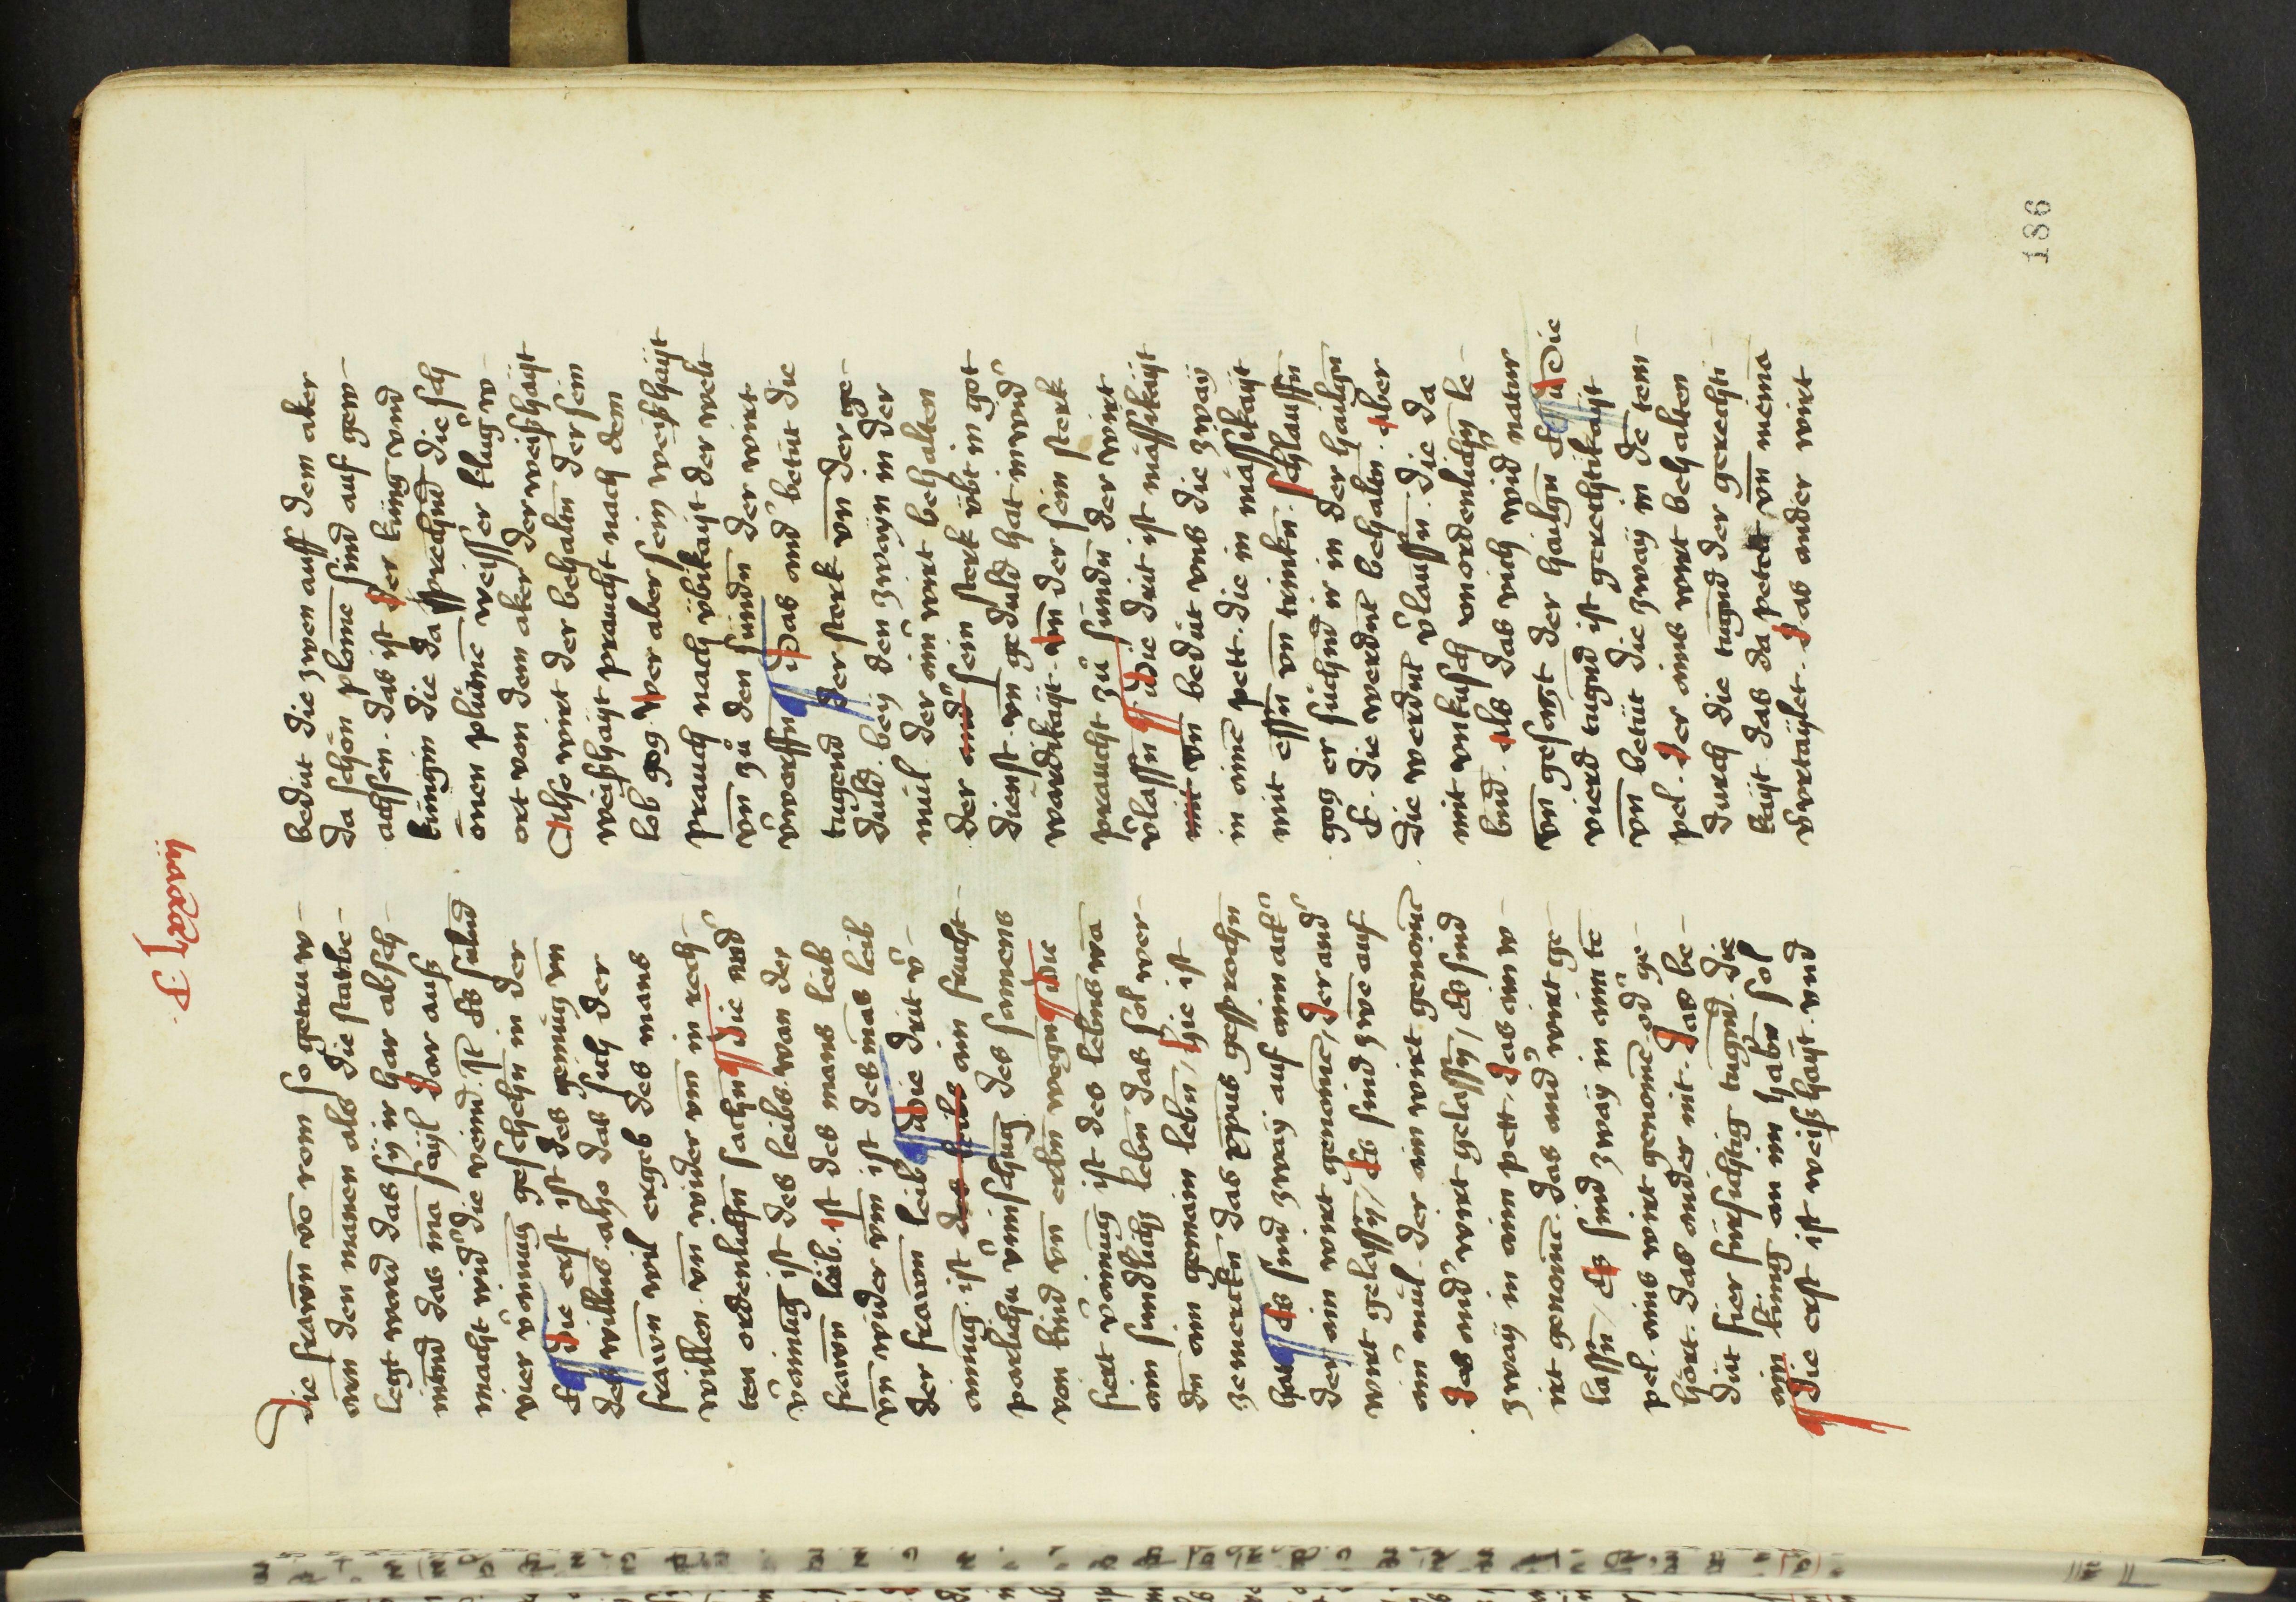 C lxxxvij
Die frawen võ rom so getruw-
ten den mannen als die statbe-
legt ward das sy ir har absch-
nittend das mã sayl dar auß
macht wid' die veind. ¶ Es sulend
vier v'ainung geschehn in der
E ¶ Die erst ist des gemüg vñ
des willens also das sich der
frawen wil ergeb des mans
willen. vñ wider vm in rech-
ten ordenlichen sachen ¶ Die and'
v'ainung ist des leibs. wan der
frawen leib. ist des mans leib
vñ wider vm ist des mãs leib
der frawen leib ¶ Die drit v'-
ainung ist des leibs ain frucht-
parlichu v'mischung des samens
von kind vñ erbn wegen ¶ Die
fiert v'ainung ist des lebens wã
ain sundlich leben das sol wer-
den ain gemain leben, hie ist
zemerckn das xp̄us gesprochn
hat ¶ Es sind zway auf ainn ack'
der ain wirt genomē, der and'
wirt gelassn, Es sind zwe auf
ain' mül. der ain wirt genomē
das and' wirt gelassn, Es sind
zway in ainn pett. das ain w-
irt genomē. das and' wirt ge-
lassn, Es sind zway in ainn tē-
pel. ains wirt genomē. od' ge-
hört. das ander nit. Das be-
düt fier fürsichtig tugnd. die
ain küng an im haben sol
¶ Die erst ist weißhayt. vnd
bedüt die zwen auff dem aker
da schön plomē sind auf gew-
achsen. das ist der küng vnd
küngin die da prechnd die sch-
önen plümē weisser klug w-
ort von dem aker der weißhayt
Also wirt der behaltn der sein
weißhayt praucht nach dem
lob gog. wer aber sein weißhayt
prauch nach üblikayt der welt
vñ zů den sünden der wirt
v'worffn ¶ Das and' betüt die
tugend der sterk vñ der ge-
duld. bey den zwayn in der
mül. der ain' wirt behalten
der sein sterk übt in got
dienst. vñ geduld hat in wid'
wärdikayt. vñ der sein sterk
praucht zů sünden der wirt
v'lassn ¶ Die drit ist mässikayt
vñ bedüt vns die zway
in ainē pett. die in mässikayt
mit essn vñ trinkn. schlauffn
gog er süchend ir in der hailign
E. die werdent behaltn. Aber
Die werdnt v'lauffn. die da
mit vnkusch vnordenlichn le-
bend. als das vich wid' natur
vñ gesazt der hailgn E ¶ Die
vierd tugnd ist gerechtikayt
vñ betüt die zway in dē tem-
pel. Der ains wirt behalten
durch die tugnd der gerechti-
kayt. das da petett vñ niemã
v'urtaylet. Das ander wirt
186